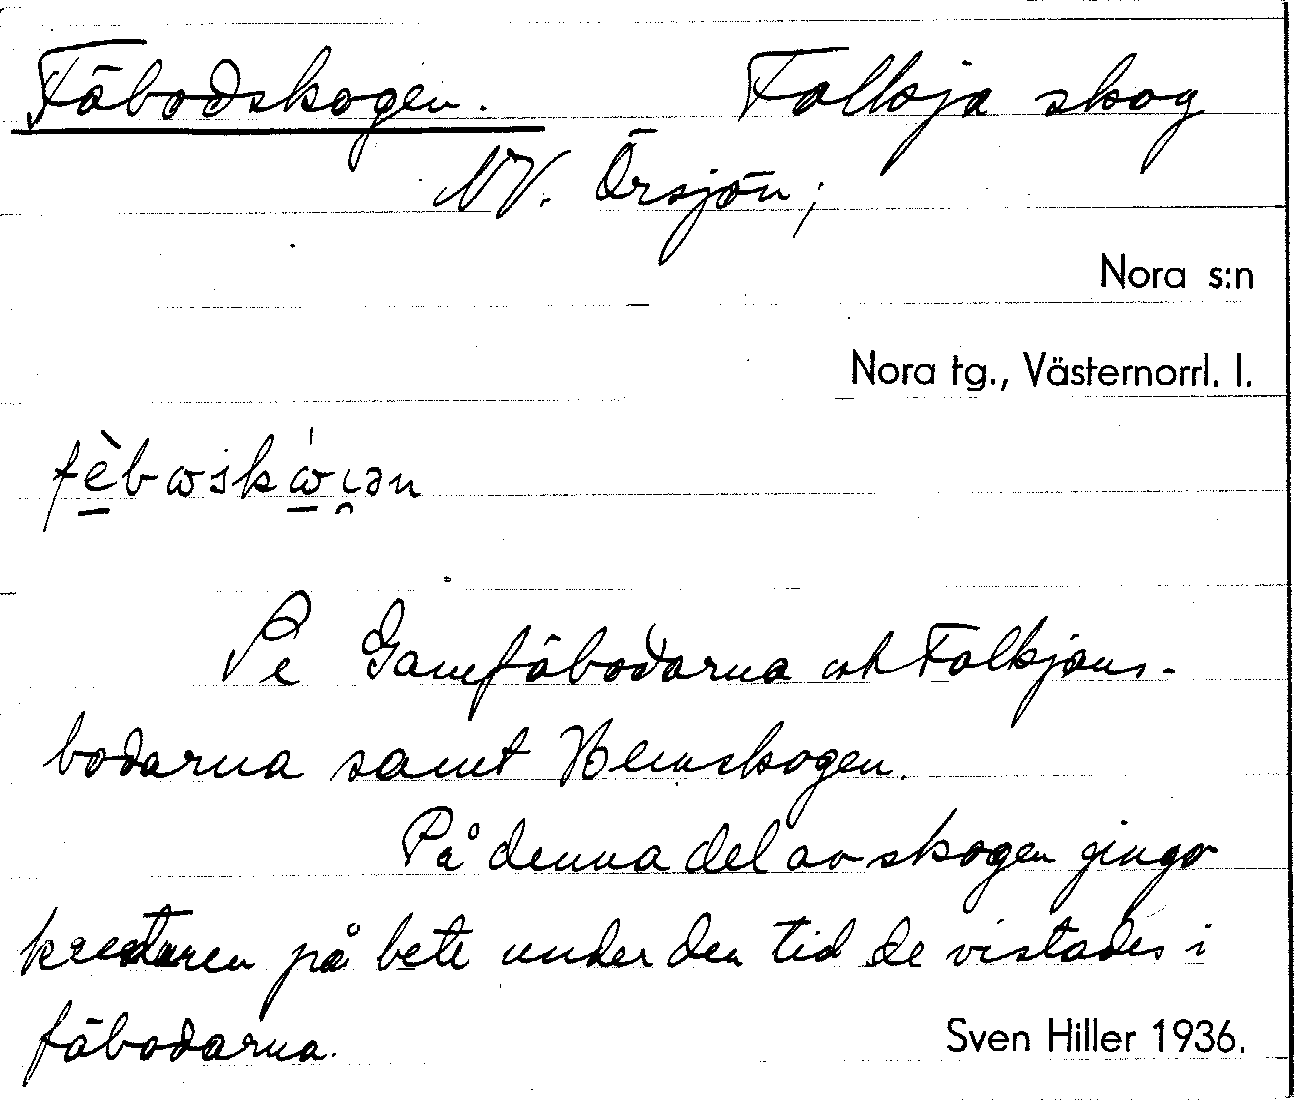 Fäbodskogen. Folkja skog
NV. Örsjön;
Nora s:n
Nora tg., Västernorrl. l.
Pe Gamfäbodarna och Folkjans-
bodarna samt Hemskogen.
På denna del av skogen gingo
kreaturen på bete under den tid de vistades i
fäbodarna.
Sven Hiller 1936.